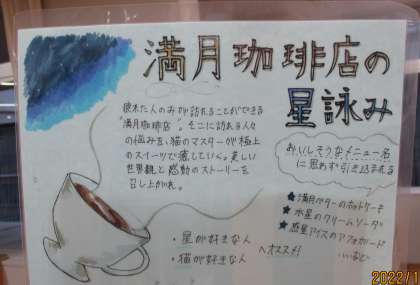 満月珈琲店の
星詠み
疲れた人のみが訪れることができる
"満月珈琲店"。そこに訪れる人々
の悩みを、猫のマスターが極上
のスイーツで癒していく。美しい
世界観と感動のストーリーを
召し上がれ。
おいしそうなメニュー名
に思わず引き込まれる
★満月バターのホットケーキ
★水星のクリームソーダ
★惑星アイスのアフォガード
…など
・星が好きな人
・猫が好きな人
へオススメ!
2022/1